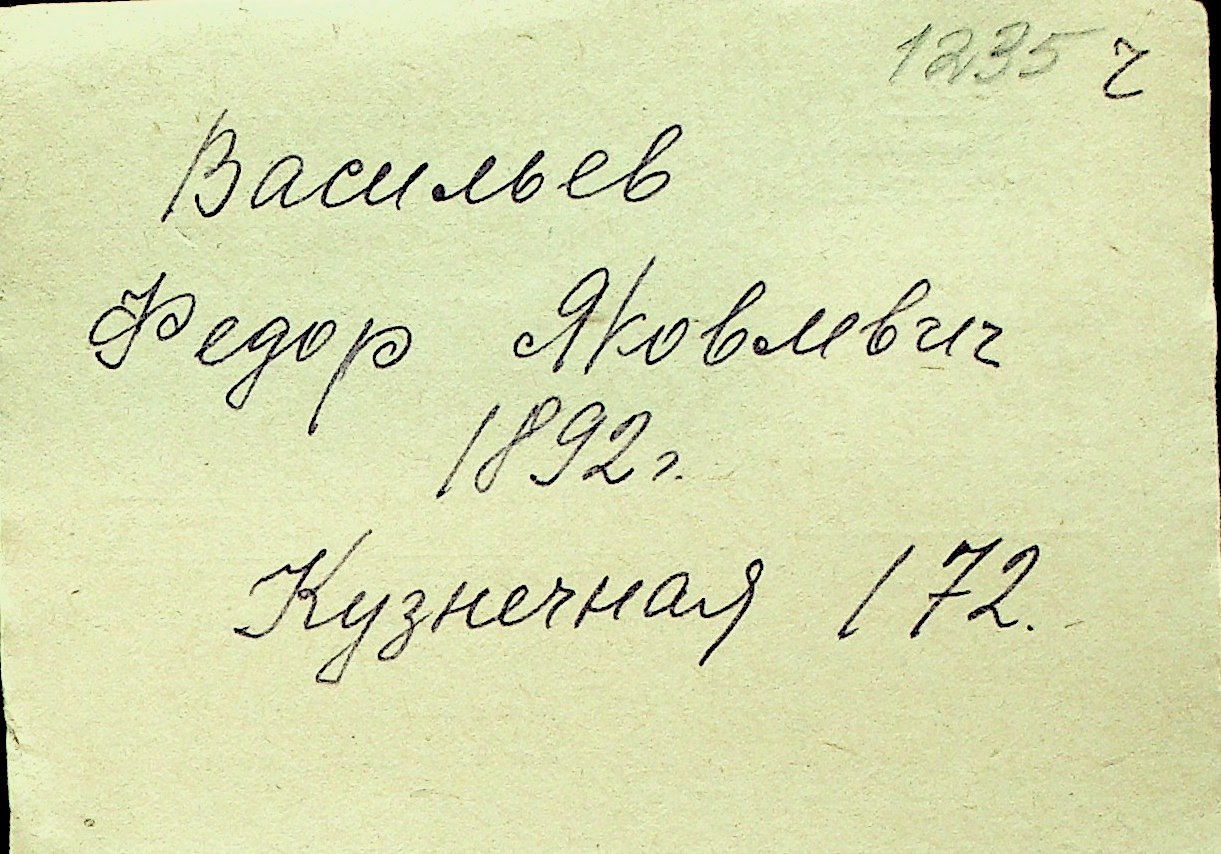 1235 ч
Васильев
Федор Яковлевич
1892 г.
Кузнечная 172.